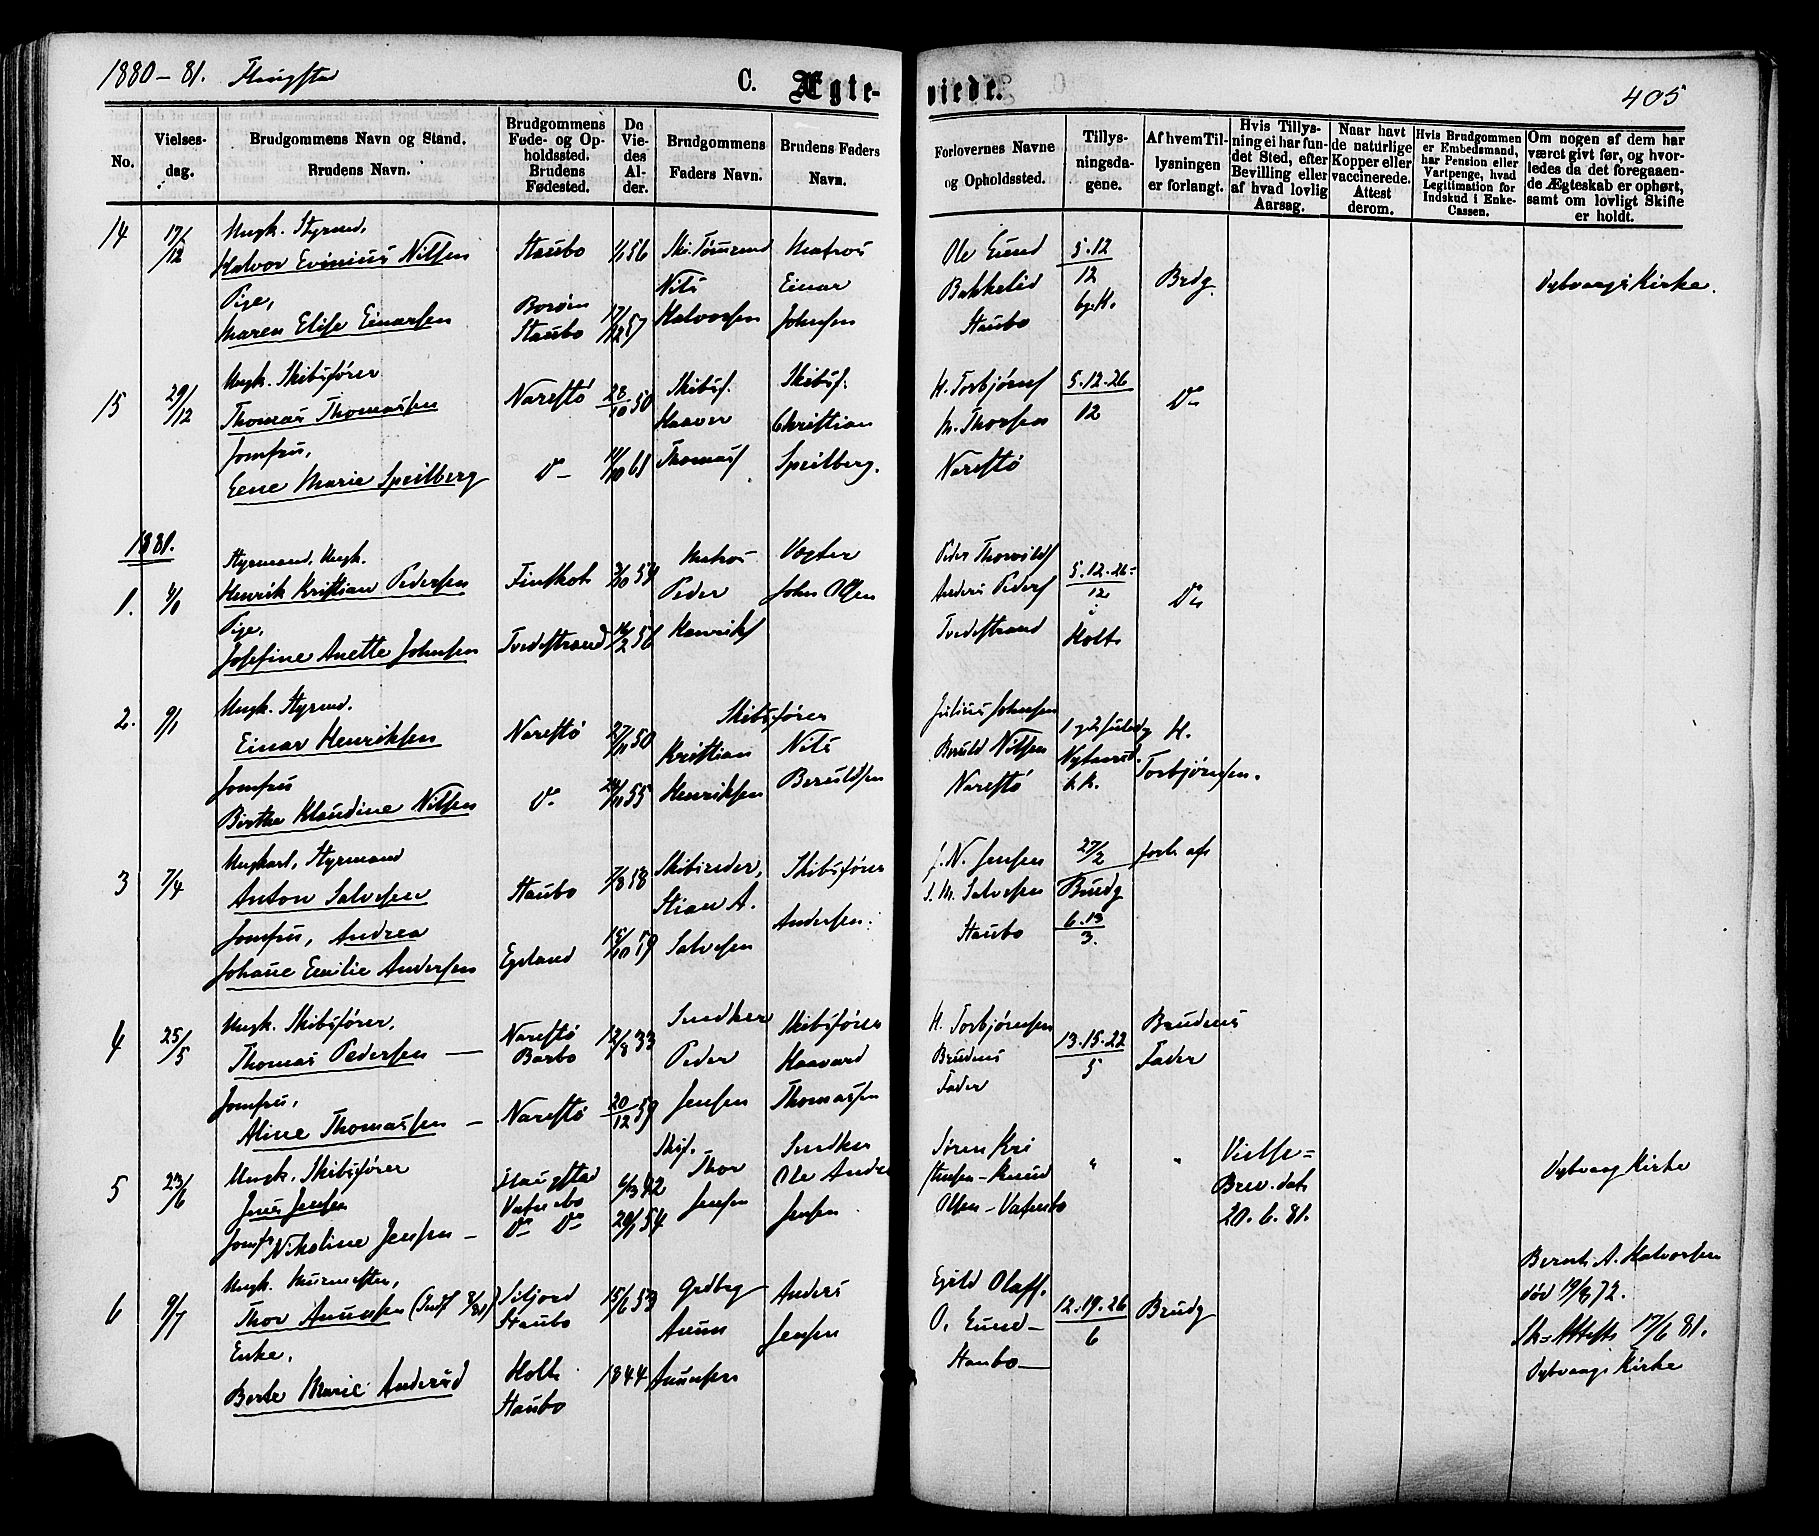 1880-81. C. Ægteviede. 405
No.
Vielsesdag.
Brudgommens Navn og Stand.
Brudens Navn.
Brudgommens
Føde- og Op-
holdssted.
Brudens
Fødested.
Da
Vie-
des
Al-
der.
Brudgommens
Faders Navn.
Brudens Faders
Navn.
Forlovernes Navne
og Opholdssted.
Tillys-
ningsda-
gene.
Af hvem Til-
lysningen
er forlangt.
Hvis Tillys-
ning ei har fun-
det Sted, efter
Bevilling eller
af hvad lovlig
Aarsag.
Naar havt
de naturlige
Kopper eller
vaccinerede.
Attest
derom.
Hvis Brudgommen
er Embedsmand,
har Pension eller
Vartpenge, hvad
Legitimation for
Indskud i Enke-
Cassen.
Om nogen af dem har
været givt før, og hvor-
ledes da det foregaaen-
de Ægteskab er ophørt,
samt om lovligt Skifte
er holdt.
14 17/12
Ungk. Styrmd.
Halvor Evinius Nilsen
Pige,
Maren Elise Einarsen
Staubo
Borøen
Staubo
56
17/12 57
Nils
Halvorsen
Matros
Einar
Johnsen
Ole Eiend
Bakkelid
Staubo
5.12
12
Brdg.
Dybvaags Kirke.
15 29/12
Ungk. Skibsfører
Thomas Thomassen
Jomfru,
Lene Marie Speilberg
Narestø
Do
28/10 50
11/10 61
Skibsf.
Haaver
Thomass
Skibsf.
Christian
Speilberg.
H. Torbjørns
M. Thorsen
Narestø
5.12.26
12
Do
1881.
1.
Styrmand, Ungk.
Henrik Kristian Pedersen
Pige,
Josefine Anette Johnsen
Tvedestrand
54
56
Matros
Peder
Henriks
Vogter
John Olsen
Peder Thorvilds
Anders Peders
Tvedestrand
5.12.26
12
i
Holt
Do
2. 9/1
Ungk. Styrmd.
Einar Henriksen
Jomfru
Birthe Klaudine Nilsen
Narestø
Do
27/11 50
55
Skibsfører
Kristian
Henriksen
Nils
Beruldsen
Julius Johnsen
Beruld Nilsen
Narestø
H.
Torbjørnsen.
3 7/4
Ungkarl, Styrmand
Anton Salvesen
Jomfru, Andrea
Johane Emilie Andersen
Staubo
Egeland
7/8 58
15/10 59
Skibsreder,
Stian A.
Salvesen
Skibsfører
Andersen
J. N. Jensen
S. M. Salvesen
Staubo
27/2
Brudg
6.13
3.
forl. af
4 25/5
Ungk. Skibsfører,
Thomas Pedersen
Jomfru,
Aline Thomassen
Narestø
Barbo
Narestø
12/8 33
20/12 59
Snedker
Peder
Jensen
Skibsfører
Haavard
Thomassen
H. Torbjørnsen
Brudens
Fader
13.15.22
5
Brudens
Fader
5 23/6
Ungk. Skibsfører
Jens Jensen
Jomf. Nikoline Jensen
Do Do
6/3 42
54
Skif.
Thor
Jensen
Snedker
Ole Andr.
Jensen
Søren Kri
stensen - Knud
Olsen - Vatnebo
"
"
Vielse-
Brev. dat.
20.6.81.
Dybvaag Kirke
6 9/7
Ungk. Murmester,
Thor Anunsen
Enke,
Berte Marie Andersd
Siljord
Staubo
Holt
Staubo
15/6 53
1844
Grdbrg
Anun
Anunsen
Anders
Jensen
Egild Olaff.
O. Eiend
Staubo
12.19.26
6
Brudg
Bernt A. Halvorsen
død 19/8 72.
Sk. Attest 17/6 81.
Dybvaags Kirke